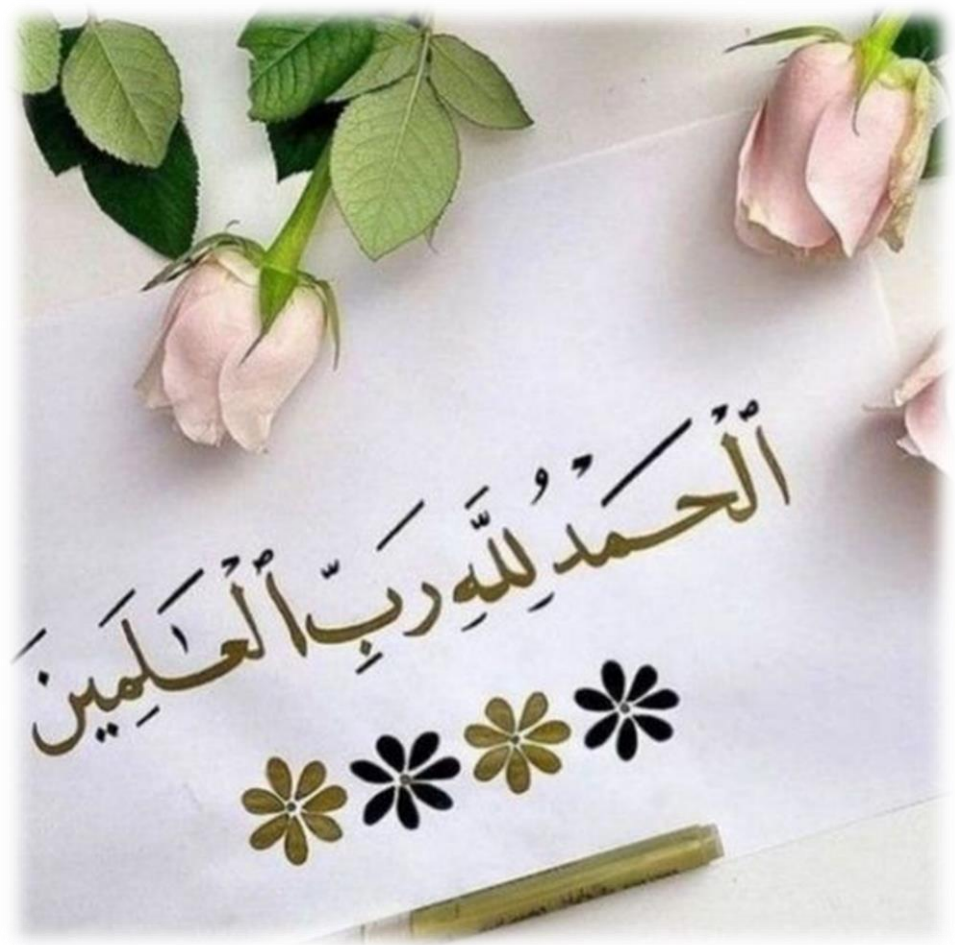 ٱلْحَمْدُ لِلَّهِ رَبِّ ٱلْعَٰلَمِينَ